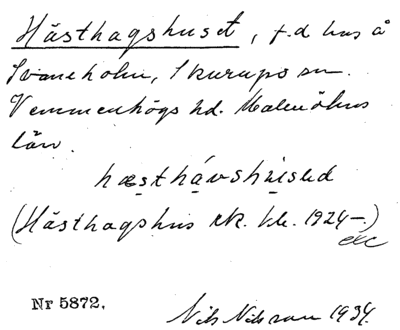 Hästhagshuset, f.d hus å
Svaneholm, Skurups sn.
Vemmenhögs hd. Malmöhus
län.
hæsthávshúsəd
(Hästhagshus rk. kb. 1924–)
etc
Nr 5872.
Nils Nilsson 1934.